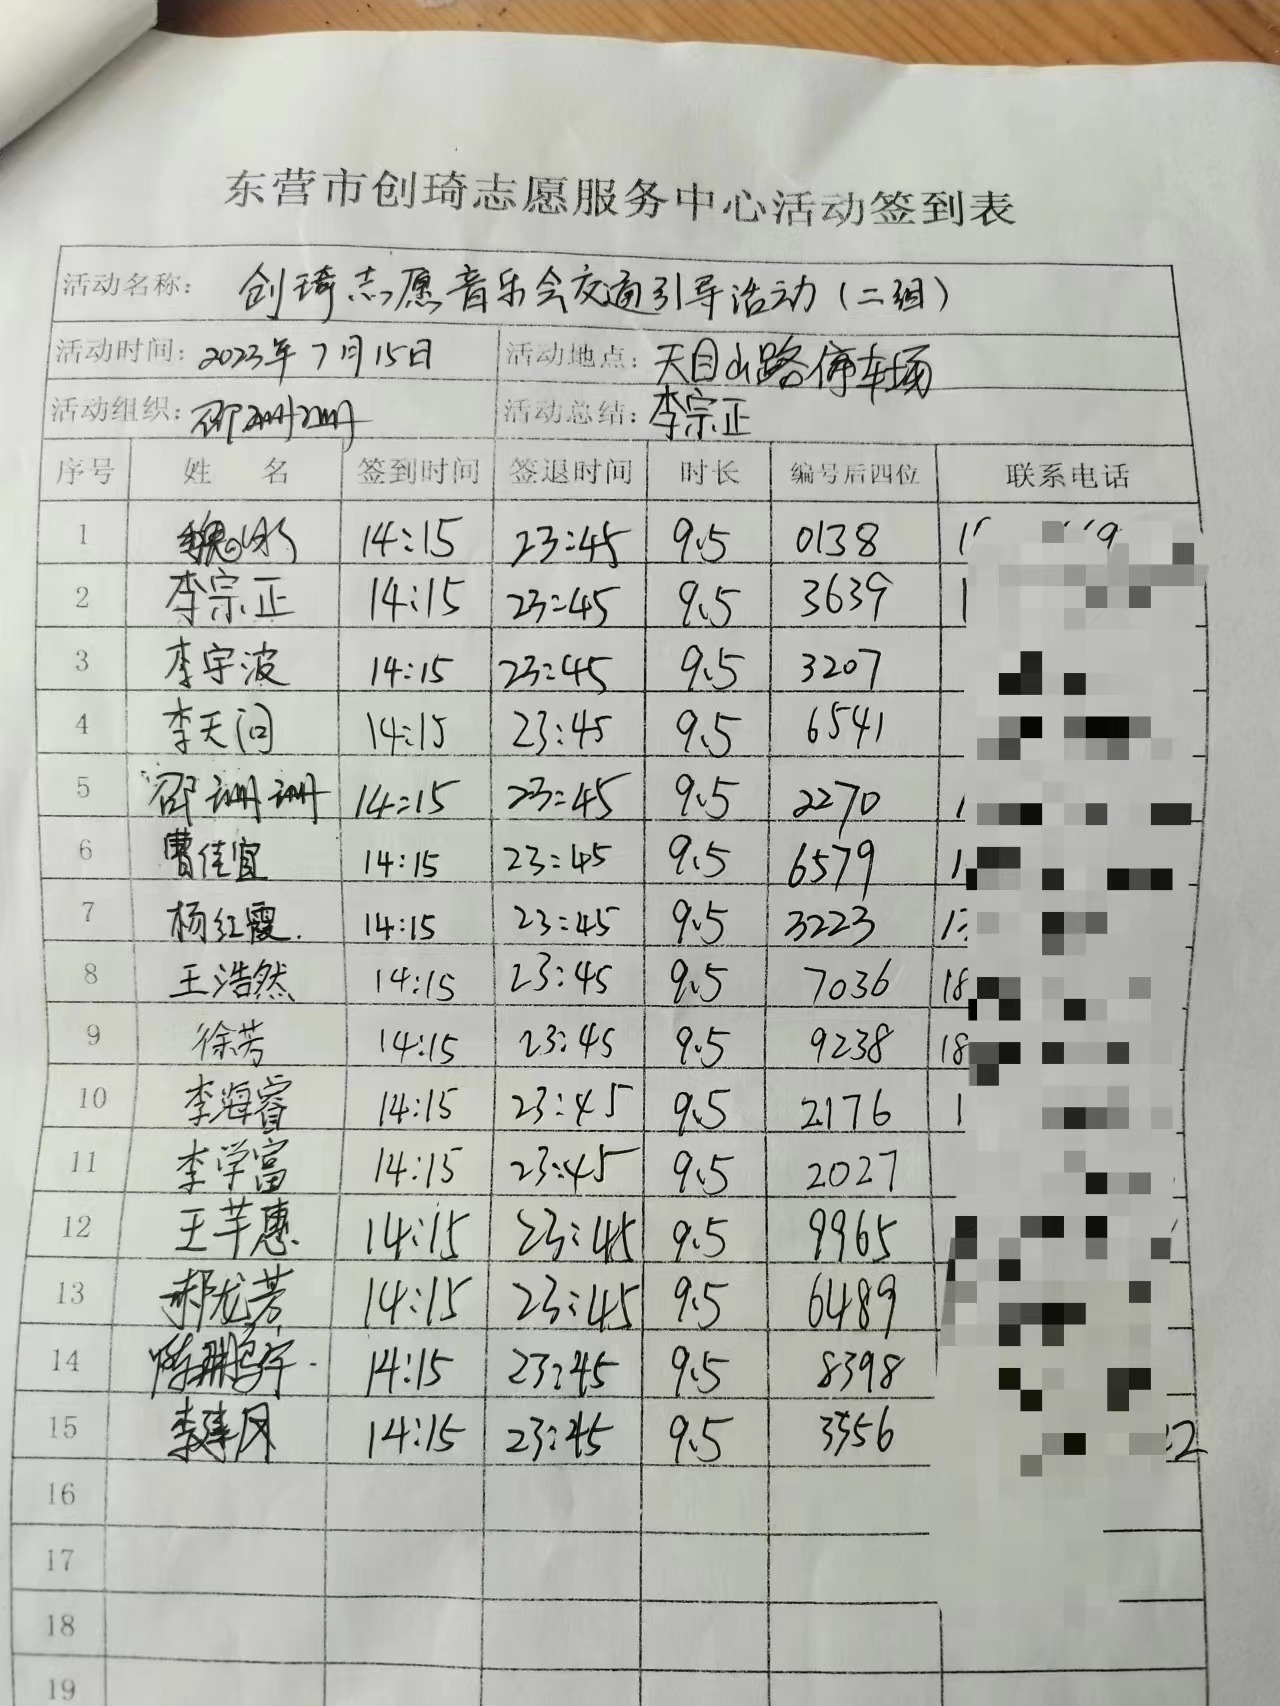 东营市创琦志愿服务中心活动签到表
活动名称: 创琦志愿音乐会交通引导活动(二组)
活动时间: 2023年7月15日 活动地点: 天目山路停车场
活动组织: 邵珊珊 活动总结: 李宗正
序号 姓 名 签到时间 签退时间 时长 编号后四位 联系电话
1 14:15 23:45 9.5 0138
2 李宗正 14:15 23:45 9.5 3639 1
3 李宇波 14:15 23:45 9.5 3207
4 李天问 14:15 23:45 9.5 6541
5 邵珊珊 14:15 23:45 9.5 2270 1
6 曹佳宜 14:15 23:45 9.5 6579 1
7 杨红霞. 14:15 23:45 9.5 3223 1
8 王浩然 14:15 23:45 9.5 7036 18
9 徐芳 14:15 23:45 9.5 9238 18
10 李海睿 14:15 23:45 9.5 2176 1
11 李学富 14:15 23:45 9.5 2027
12 王芊惠 14:15 23:45 9.5 9965
13 郝龙芳 14:15 23:45 9.5 6489
14 14:15 23:45 9.5 8398
15 14:15 23:45 9.5 3556 2
16
17
18
19